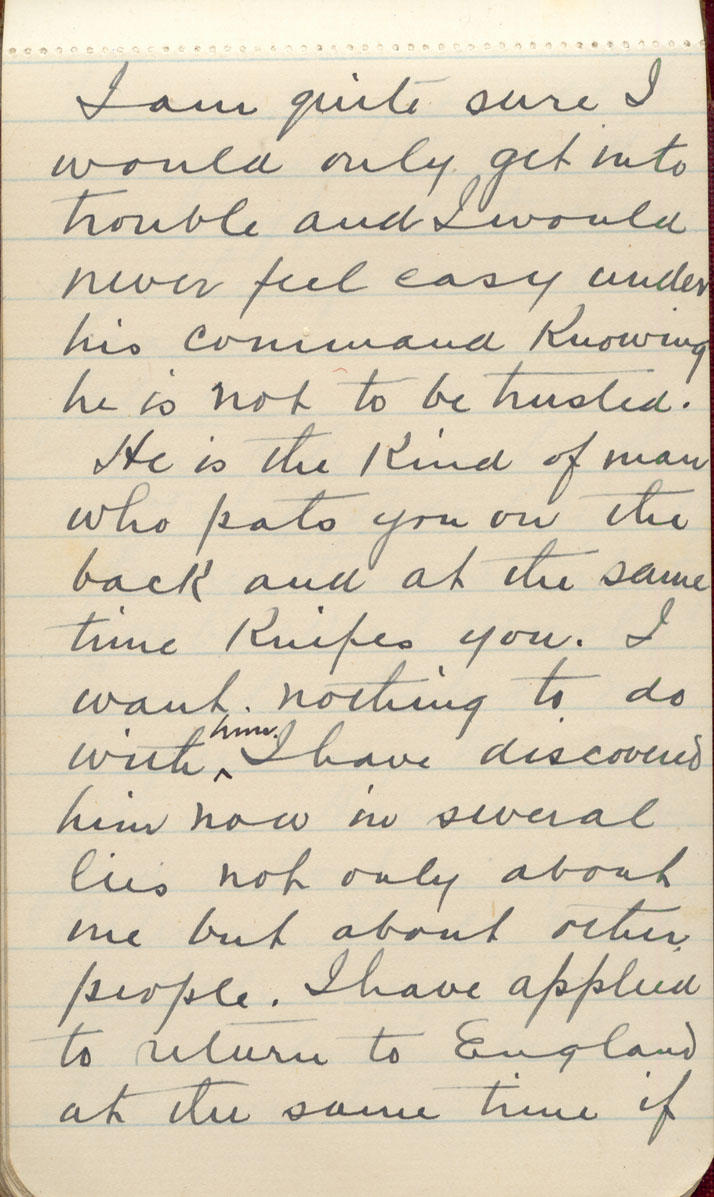 I am quite sure I
would only get into
trouble and I would
never feel easy under
his command Knowing
he is not to be trusted.
He is the Kind of man
who pats you on the
back and at the same
time Knifes you. I
want nothing to do
with ^him. I have discovered
him now in several
lies not only about
me but about other
people. I have applied
to return to England
at the same time if